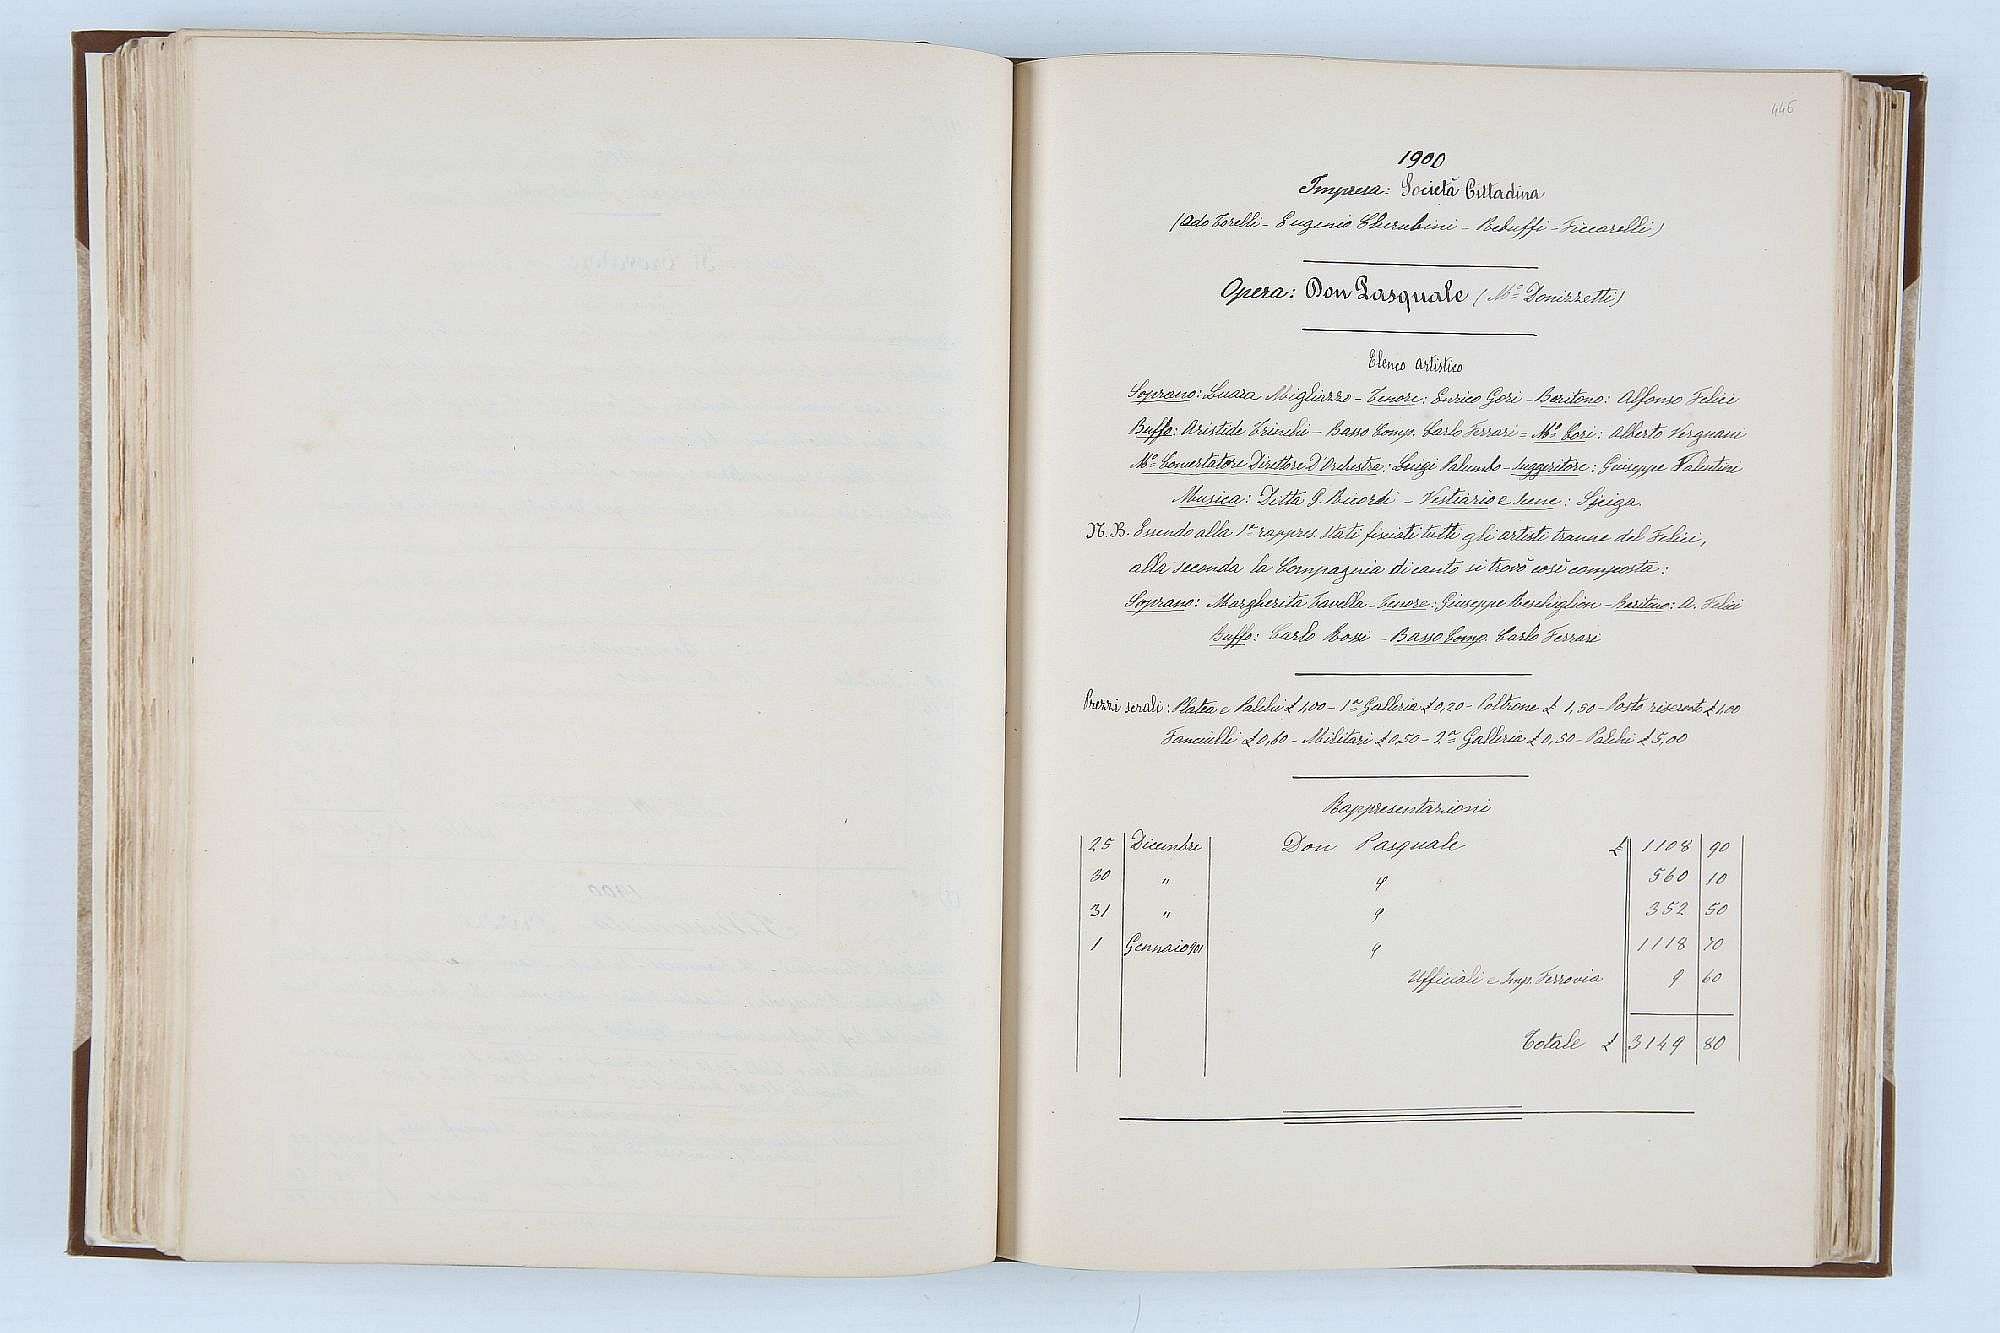 446
1900
Impresa: Società Cittadina
(Ado Torelli - Eugenio Cherubini - Reduffi - Ficcarelli)
Opera: Don Pasquale (Mº Donizzetti)
Elenco artistico
Soprano: Luara Migliazzo - Tenore: Enrico Gori - Baritono: Alfonso Felici
Buffo: Aristide Trinchi - Basso Comp. Carlo Ferrari = Mº Cori: Alberto Vergnani
Mº Concertatore Direttore D'Orchestra: Luigi Palumbo - Suggeritore: Giuseppe Valentini
Musica: Ditta G. Ricordi - Vestiario e scene: Speiga.
N.B. Essendo alla 1ª rappres. stati fisciati tutti gli artisti tranne del Felici,
alla seconda la Compagnia di canto si trovò così composta:
Soprano: Margherita Tavella - Tenore: Giuseppe Reschiglion - Baritono: A. Felici
Buffo: Carlo Rossi - Basso Comp. Carlo Ferrari
Prezzi serali: Platea e Palchi £ 1,00 - 1ª Galleria £ 0,20 - Poltrone £ 1,50 - Posto riservato £ 1,00
Fanciulli £ 0,60 - Militari £ 0,50 - 2ª Galleria £ 0,50 - Palchi £ 5,00
Rappresentazioni
25 Dicembre Don Pasquale £ 1108 90
30 " " 560 10
31 " " 352 50
1 Gennaio 901 " 1118 70
Ufficiali e Imp. Ferrovia 9 60
Totale £ 3149 80